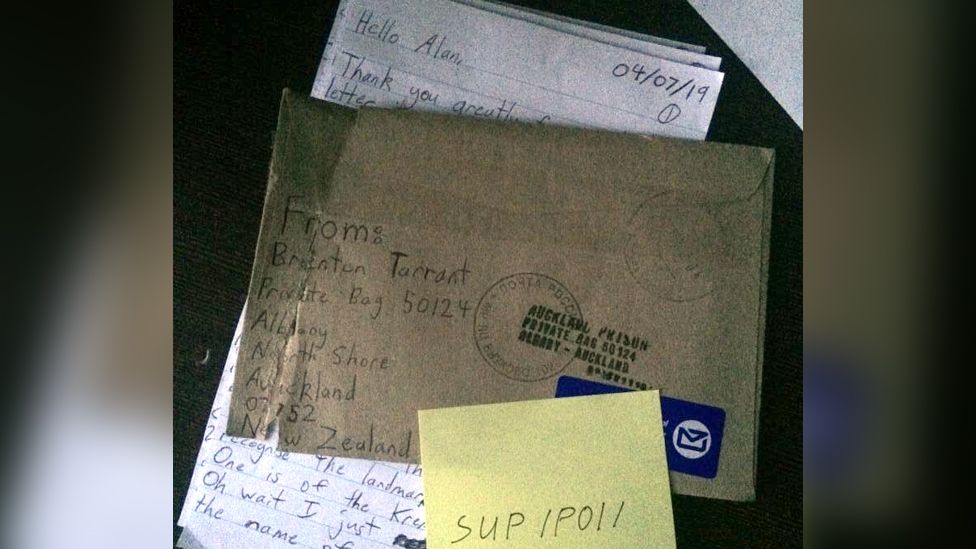 Hello Alan,
04/07/19
①
Thank you greatly
letter
From:
Brenton Tarrant
Private Bag 50124
Albany
North Shore
Auckland
0752
New Zealand
ПОЧТА РОССИИ
AUCKLAND PRISON
PRIVATE BAG 50124
ALBANY - AUCKLAND
recognise the landmar
One is of the Kre
Oh wait I just
the name of
SUP /POL/